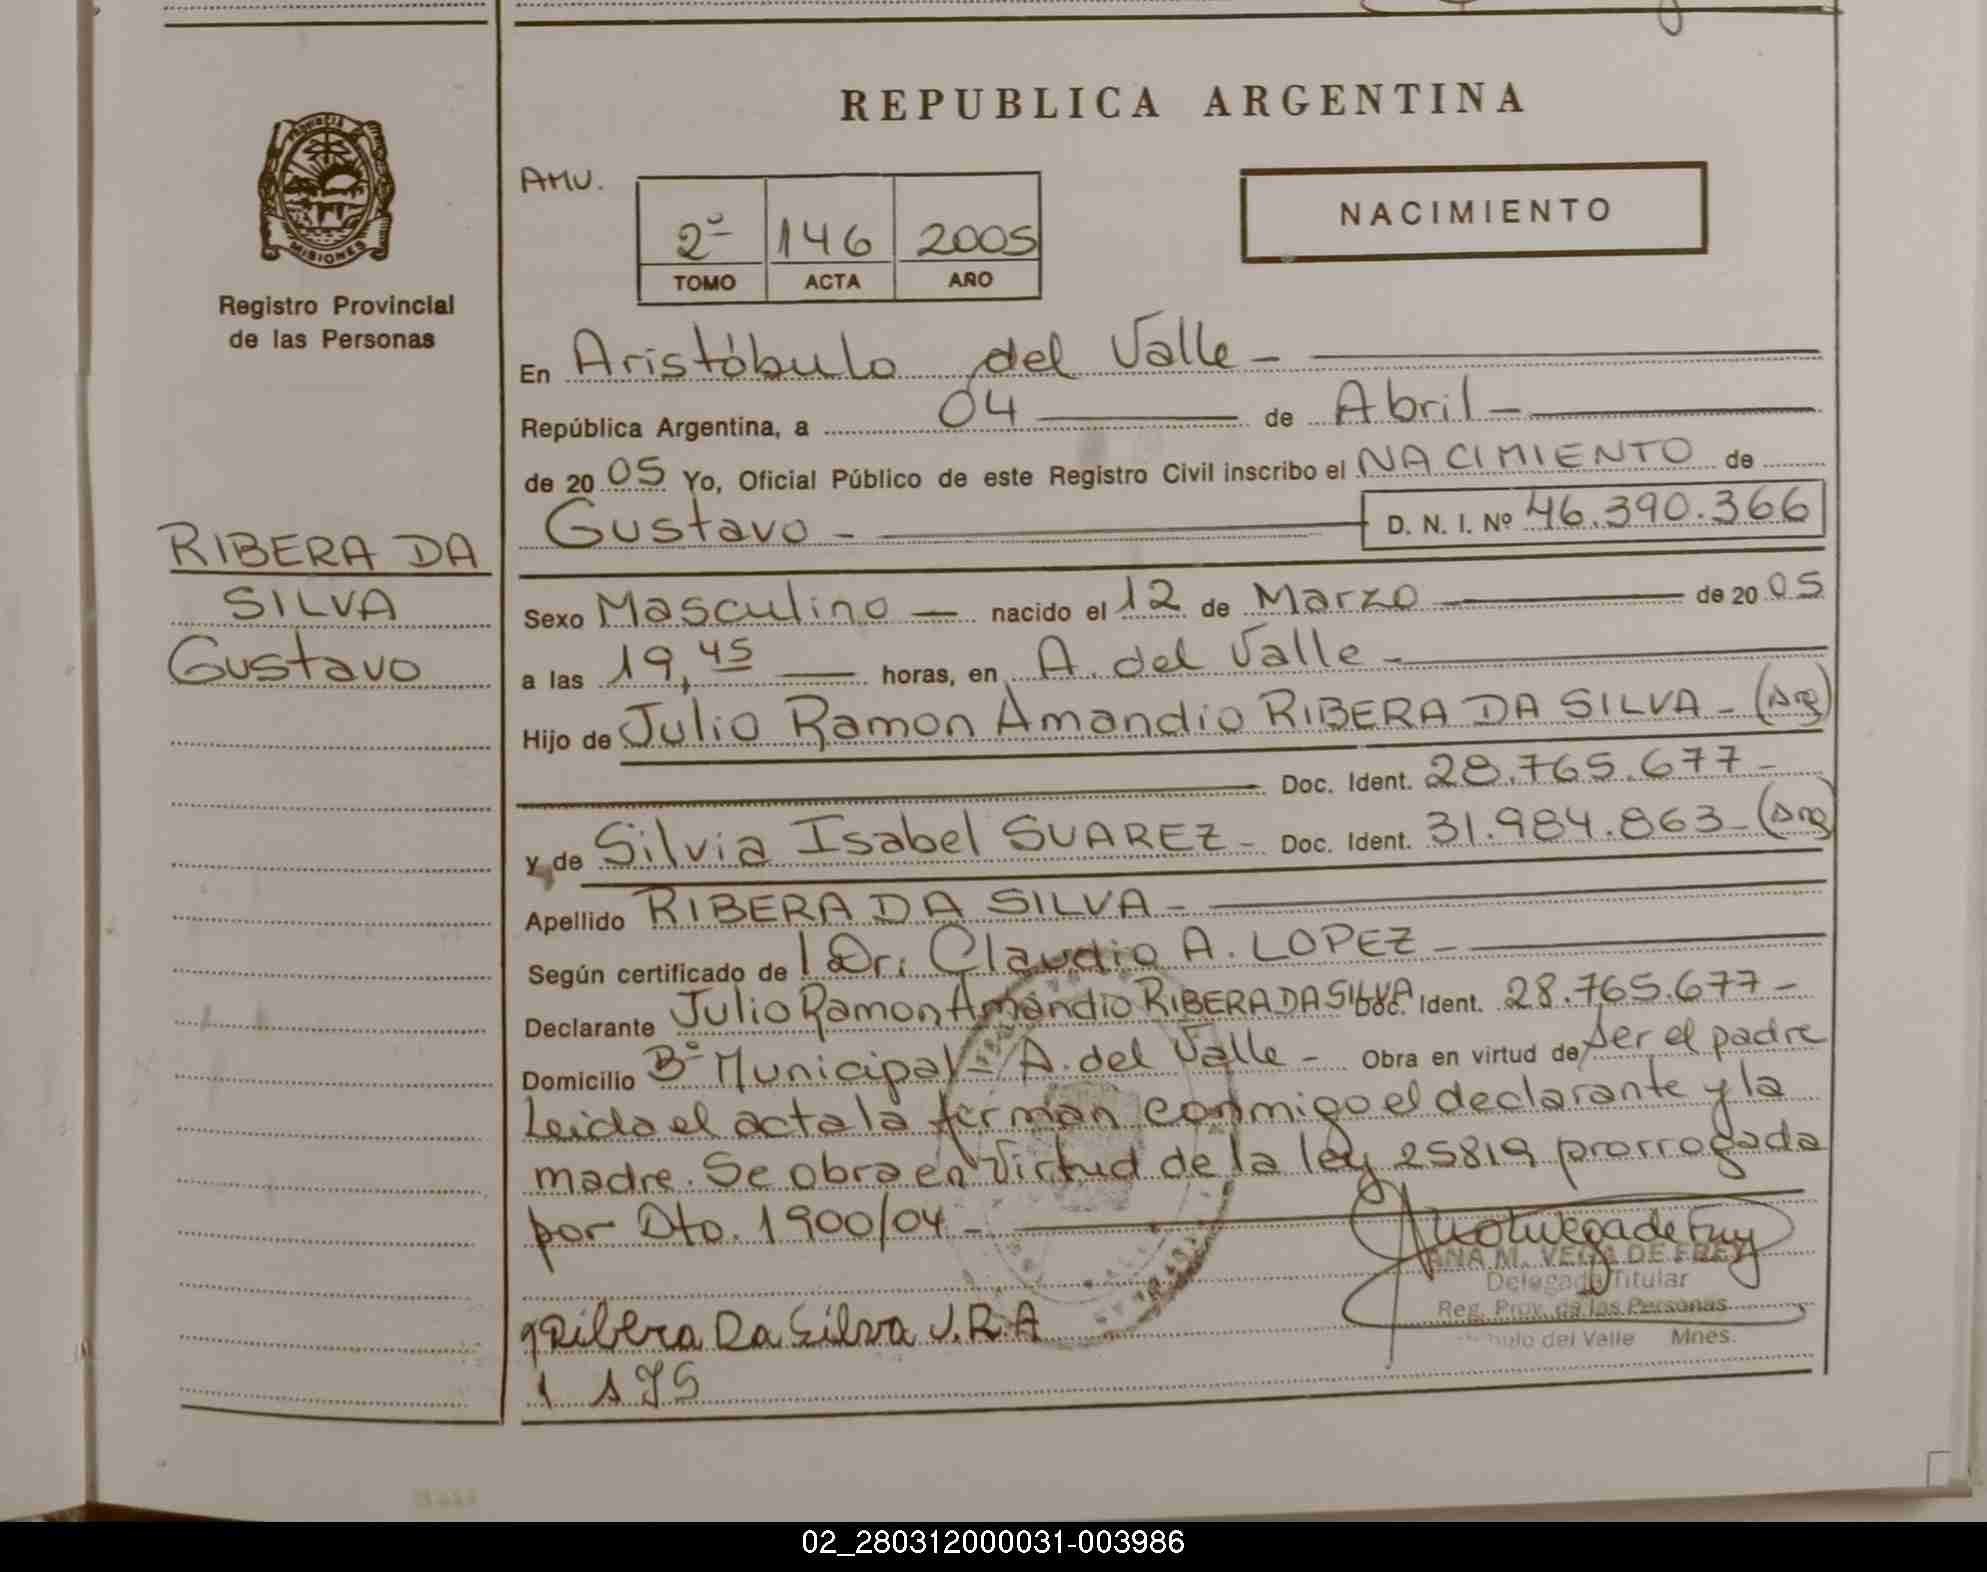 REPUBLICA ARGENTINA
PROVINCIA DE
MISIONES
Registro Provincial
de las Personas
AMU.
2º 146 2005
TOMO ACTA AÑO
NACIMIENTO
En Aristóbulo del Valle -
República Argentina, a 04 de Abril -
de 20 05 Yo, Oficial Público de este Registro Civil inscribo el NACIMIENTO de
Gustavo - D. N. I. Nº 46.390.366
RIBERA DA
SILVA
Gustavo
Sexo Masculino - nacido el 12 de Marzo de 20 05
a las 19,45 horas, en A. del Valle -
Hijo de Julio Ramon Amandio RIBERA DA SILVA - (Arg)
Doc. Ident. 28.765.677 -
y de Silvia Isabel SUAREZ - Doc. Ident. 31.984.863 - (Arg)
Apellido RIBERA DA SILVA -
Según certificado de Dr. Claudio A. LOPEZ -
Declarante Julio Ramon Amandio RIBERA DA SILVA Doc. Ident. 28.765.677 -
Domicilio Bº Municipal - A. del Valle - Obra en virtud de ser el padre
Leida el acta la firman conmigo el declarante y la
madre. Se obra en virtud de la ley 25819 prorrogada
por Dto. 1900/04 -
ANA M. VEGA DE FREY
Delegada Titular
Reg. Prov. de las Personas
del Valle Mnes.
Ribera Da Silva J.R.A
02_280312000031-003986